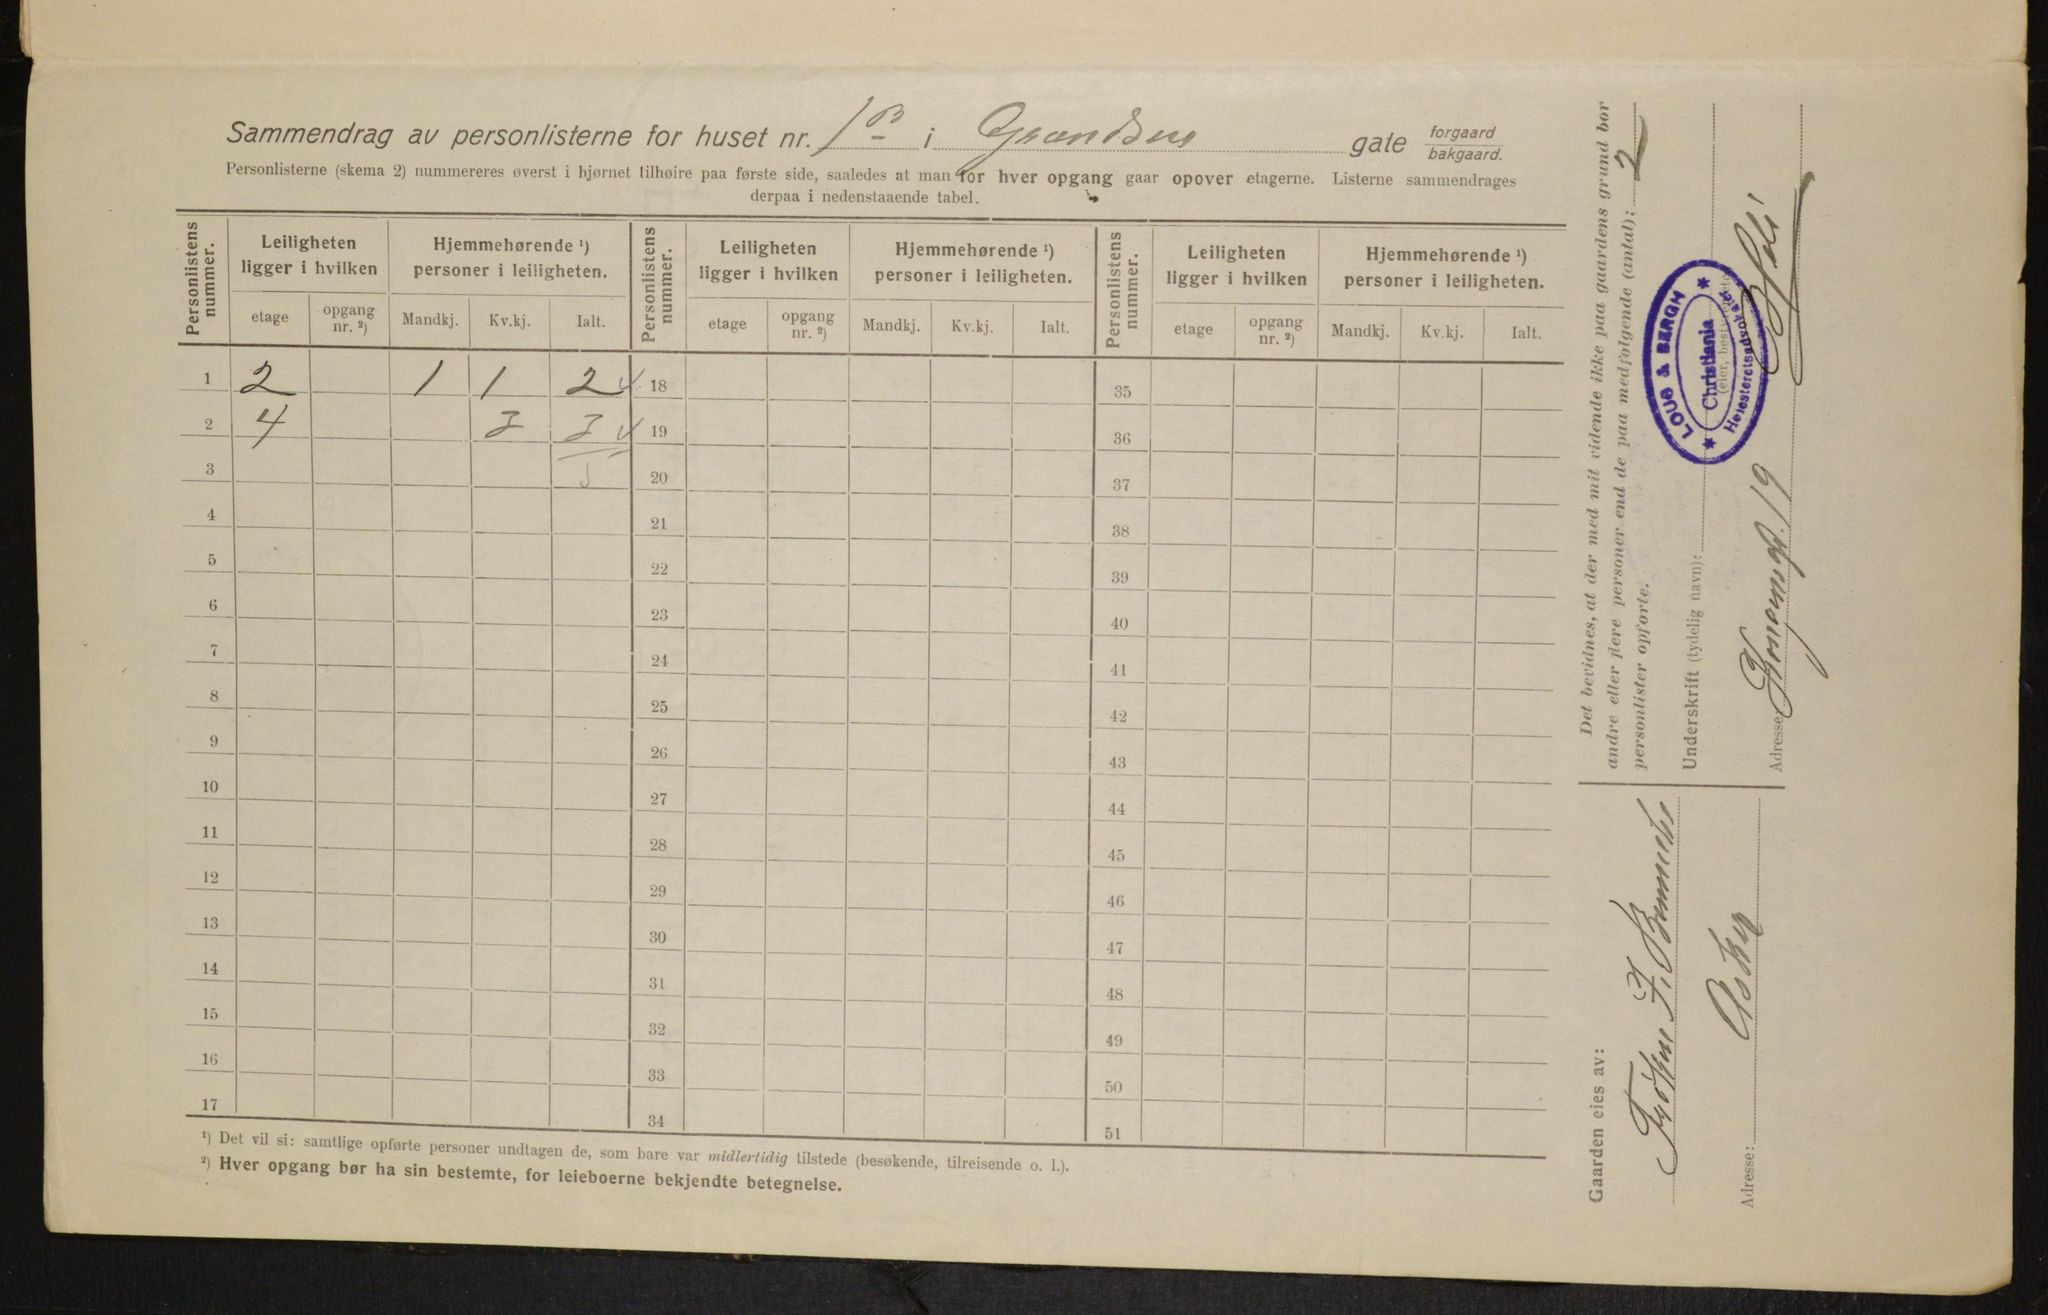 Sammendrag av personlisterne for huset nr. 1B i Grændsen gate forgaard bakgaard.
Personlisterne (skema 2) nummereres øverst i hjørnet tilhøire paa første side, saaledes at man for hver opgang gaar opover etagerne. Listerne sammendrages
derpaa i nedenstaaende tabel.
Personlistens nummer. Leiligheten ligger i hvilken Hjemmehørende ¹) personer i leiligheten. Personlistens nummer. Leiligheten ligger i hvilken Hjemmehørende ¹) personer i leiligheten. Personlistens nummer. Leiligheten ligger i hvilken Hjemmehørende ¹) personer i leiligheten.
etage opgang nr. ²) Mandkj. Kv.kj. Ialt. etage opgang nr. ²) Mandkj. Kv.kj. Ialt. etage opgang nr. ²) Mandkj. Kv.kj. Ialt.
1 2 1 1 2 18 35
2 4 3 3 19 36
3 5 20 37
4 21 38
5 22 39
6 23 40
7 24 41
8 25 42
9 26 43
10 27 44
11 28 45
12 29 46
13 30 47
14 31 48
15 32 49
16 33 50
17 34 51
¹) Det vil si: samtlige opførte personer undtagen de, som bare var midlertidig tilstede (besøkende, tilreisende o. l.).
²) Hver opgang bør ha sin bestemte, for leieboerne bekjendte betegnelse.
Det bevidnes, at der med mit vidende ikke paa gaardens grund bor
andre eller flere personer end de paa medfølgende (antal): 2
personlister opførte.
Underskrift (tydelig navn):
LOUS & BERGH
Christiania
Høiesteretsadvokater
Adresse: Kongensgt. 19
Gaarden eies av:
Frøken F.
Adresse: Asker